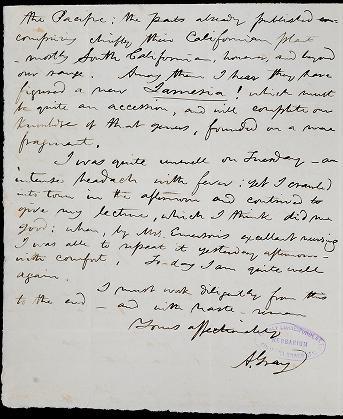 the Pacific; the parts already published com-
comprising chiefly their Californian plants
- mostly South Californian, however, and beyond
our range. Among them I hear they have
figured a new Jamesia! which must
be quite an accession, and will complete our
knowledge of that genus, founded on a mere
fragment.
I was quite unwell on Tuesday - an
intense headach with fever; yet I crawled
into town in the afternoon and contrived to
give my lecture, which I think did me
good; when, by Mrs. Emerson's excellent nursing
I was able to repeat it yesterday afternoon
with comfort. To-day I am quite well
again.
I must work diligently from this
to the end - and with haste remain
Yours affectionately
A. Gray
HERBARIUM